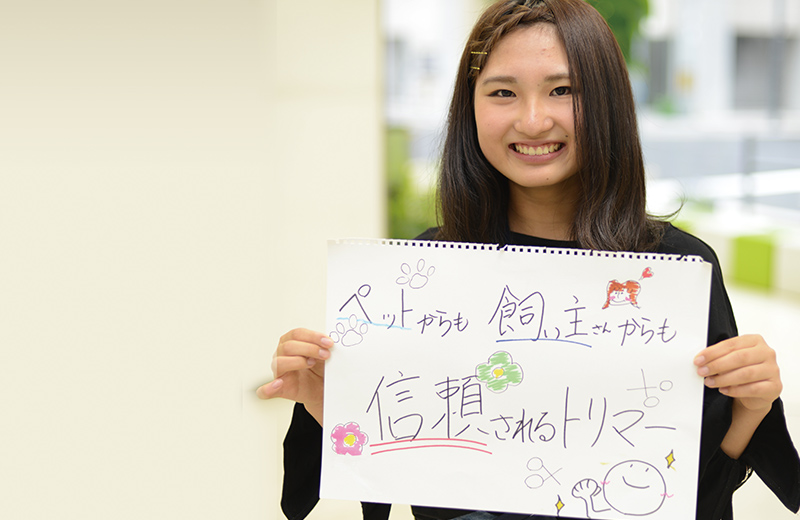 ペットからも 飼い主さんからも
信頼されるトリマー